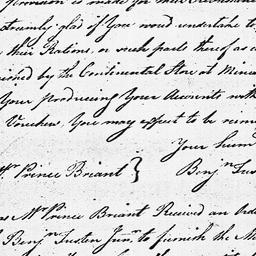 provision is made for their
extreamly glad if You would undertake to
their Rations, or such parts thereof as
nished by the Continental Store at
Your producing Your Accounts with
Vouchers, You may expect to be
Your hum
Mr Prince Briant } Benjn Tus
Mr Prince Briant Received an Ord
Benjn Tusten Junr to furnish the